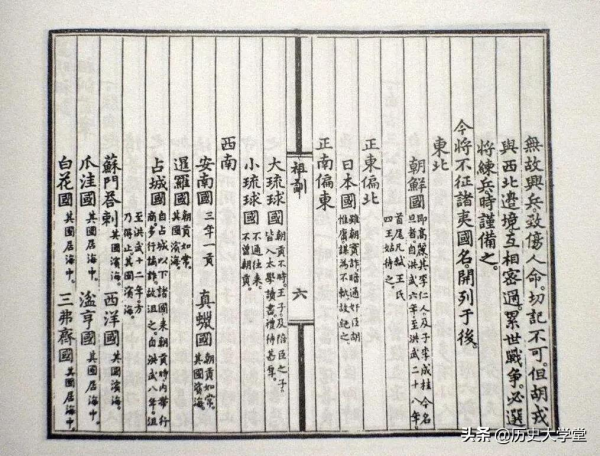 無故興兵致傷人命。切記不可。但胡戎
與西北邊境互相密邇累世戰爭。必選
將練兵時謹備之。
今將不征諸夷國名。開列于後。
東北
朝鮮國
即高麗其李仁人及子李成桂今名
旦者。自洪武六年至洪武二十八年
首尾凡弒王氏
四王姑待之。
正東偏北
日本國
雖朝貢詐。暗通奸臣胡
惟庸謀為不軌故絕之。
正南偏東
祖訓
六
大琉球國
朝貢不時。王子及陪臣之子。
皆入太學讀書。禮待甚厚。
小琉球國
不通往來。
不曾朝貢。
西南
安南國
三年一貢
真蠟國
朝貢如常。
其國濱海。
暹羅國
朝貢如常。
其國濱海。
占城國
自占城以下諸國來朝貢時內帶行
商多行譎詐。故沮之。自洪武八年。沮
至洪武十二年。方
乃得止。其國濱海。
蘇門荅剌
其國濱海。
西洋國
其國濱海。
爪洼國
其國居海中。
湓亨國
其國居海中。
白花國
其國居海中。
三弗齊國
其國居海中。
头条 @历史大学堂